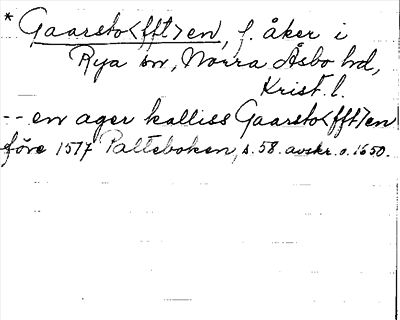 * Gaarsto<fft>en, f. åker i
Rya sn, Norra Åsbo hd,
Krist. l.
-- en ager kalliss Gaarsto<fft>en
före 1577 Palteboken, s. 58. avskr. o. 1650.